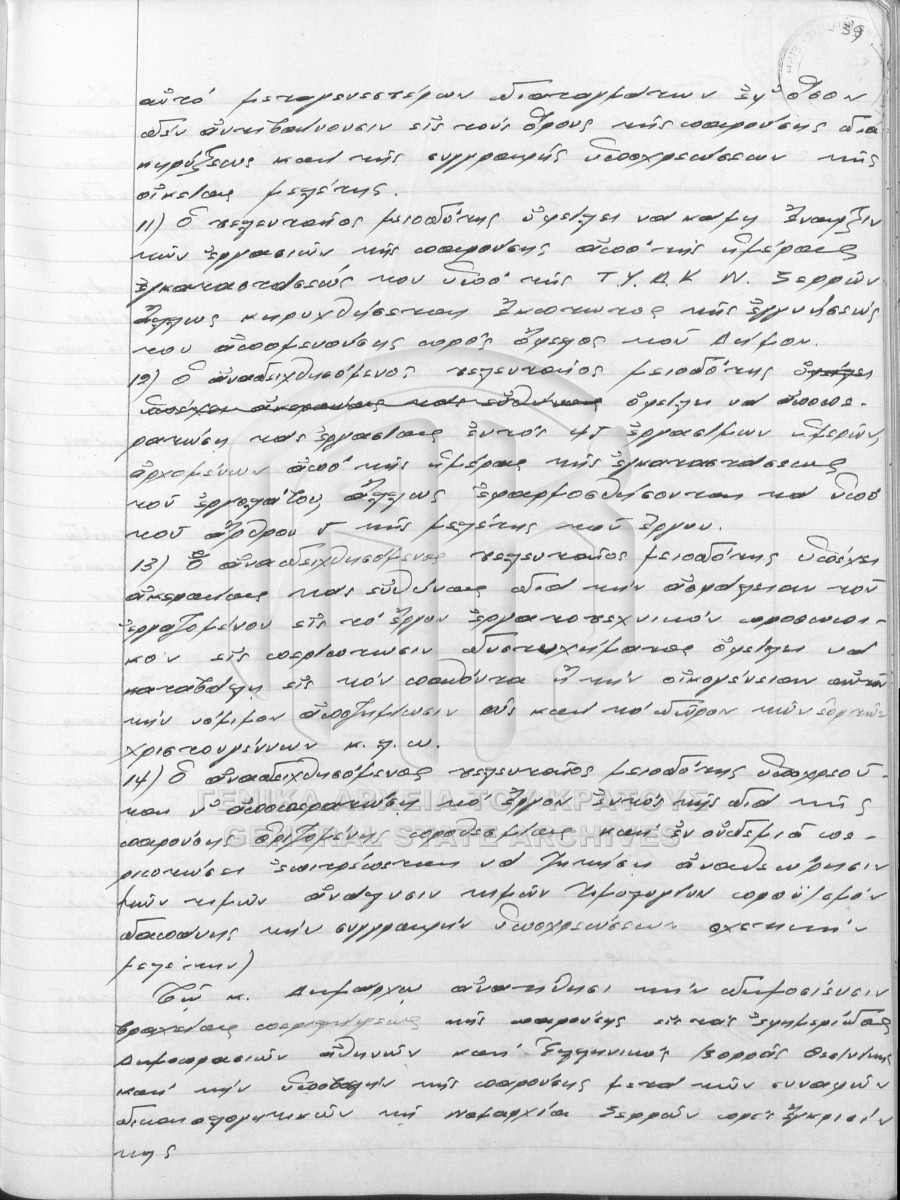 39
αὐτό μεταγενεστέρων διαταγμάτων ἐφ' ὅσον
δέν ἀντιβαίνουσιν εἰς τούς ὅρους τῆς παρούσης δια
κηρύξεως καί τῆς συγγραφῆς ὑποχρεώσεων τῆς
οἰκείας μελέτης.
11) Ὁ τελευταῖος μειοδότης ὀφείλει νά κάμῃ ἔναρξιν
τῶν ἐργασιῶν τῆς παρούσης ἀπό τῆς ἡμέρας
ἐγκαταστάσεώς του ὑπό τῆς Τ.Υ.Δ.Κ Ν. Σερρῶν
ἄλλως κηρυχθήσεται ἔκπτωτος τῆς ἐγγυήσεώς
του ἀπομενούσης πρός ὄφελος τοῦ Δήμου.
12) Ὁ ἀναδειχθησόμενος τελευταῖος μειοδότης ὀφείλει
ὑπέχει ἀκεραίας τάς εὐθύνας ὀφείλει νά ἀποπε-
ρατώσῃ τάς ἐργασίας ἐντός 45 ἐργασίμων ἡμερῶν,
ἀρχομένων ἀπό τῆς ἡμέρας τῆς ἐγκαταστάσεως
τοῦ ἐργολάβου, ἄλλως ἐφαρμοσθήσονται τά ὑπό
τοῦ ἄρθρου 5 τῆς μελέτης τοῦ ἔργου.
13) Ὁ ἀναδειχθησόμενος τελευταῖος μειοδότης ὑπέχει
ἀκεραίας τάς εὐθύνας διά τήν ἀσφάλειαν τοῦ
ἐργαζομένου εἰς τό ἔργον ἐργατοτεχνικόν προσωπι-
κόν εἰς περίπτωσιν δυστυχήματος ὀφείλει νά
καταβάλῃ εἰς τόν παθόντα ἤ τήν οἰκογένειαν αὐτοῦ
τήν νόμιμον ἀποζημίωσιν ὡς καί τό δῶρον τῶν ἑορτῶν
Χριστουγέννων κ.λ.π.
14) Ὁ ἀναδειχθησόμενος τελευταῖος μειοδότης ὑποχρεοῦ-
ται ν' ἀποπερατώσῃ τό ἔργον ἐντός τῆς διά τῆς
παρούσης ὁριζομένης προθεσμίας καί ἐν οὐδεμιᾷ πε-
ριπτώσει ἐπιτρέπεται νά ζητήσῃ ἀναθεώρησιν
τῶν τιμῶν ἀνάλυσιν τιμῶν τιμολόγιον προϋ/σμόν
δαπάνης τήν συγγραφήν ὑποχρεώσεων σχετικήν
μελέτην)
Τῷ κ. Δημάρχῳ ἀνατίθησι τήν δημοσίευσιν
βραχείας περιλήψεως τῆς παρούσης εἰς τάς ἐφημερίδας
Δημοπρασιῶν Ἀθηνῶν καί Ἑλληνικός Βορρᾶς Θεσ/νίκης
καί τήν ὑποβολήν τῆς παρούσης μετά τῶν συναφῶν
δικαιολογητικῶν τῇ Νομαρχίᾳ Σερρῶν πρός ἔγκρισίν
της
ΓΕΝΙΚΑ ΑΡΧΕΙΑ ΤΟΥ ΚΡΑΤΟΥΣ
GENERAL STATE ARCHIVES